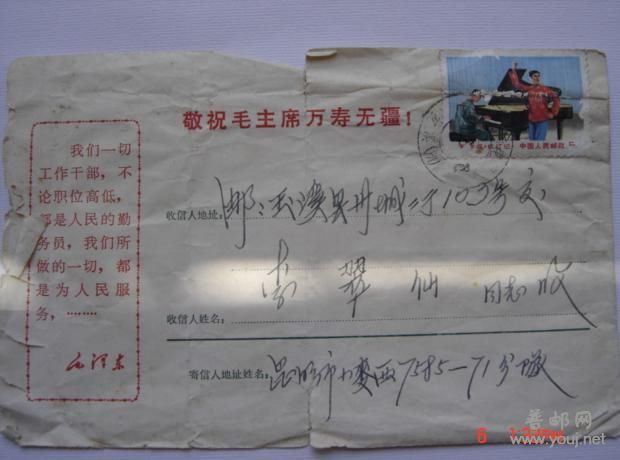 敬祝毛主席万寿无疆！
我们一切
工作干部，不
论职位高低，
都是人民的勤
务员，我们所
做的一切，都
是为人民服
务，……
毛泽东
中国人民邮政
收信人地址：玉溪县州城
收信人姓名：翠仙 同志收
寄信人地址姓名：昆明市小麦西7585—71分队
善邮网
www.youj.net